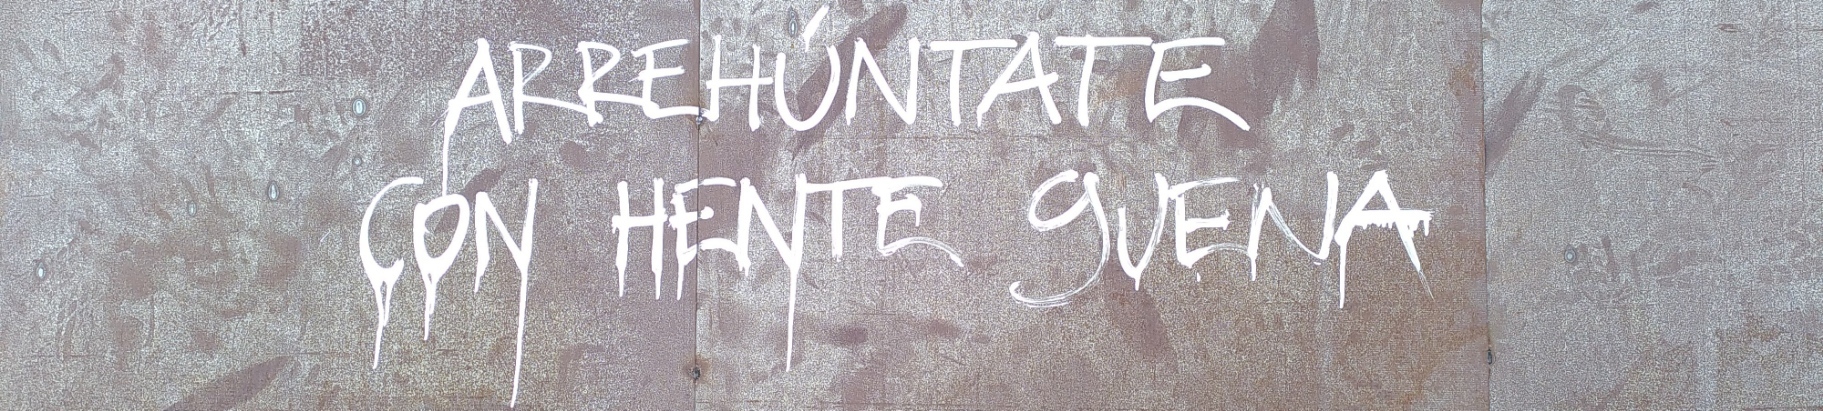 ARREHÚNTATE
CON HENTE gUENA